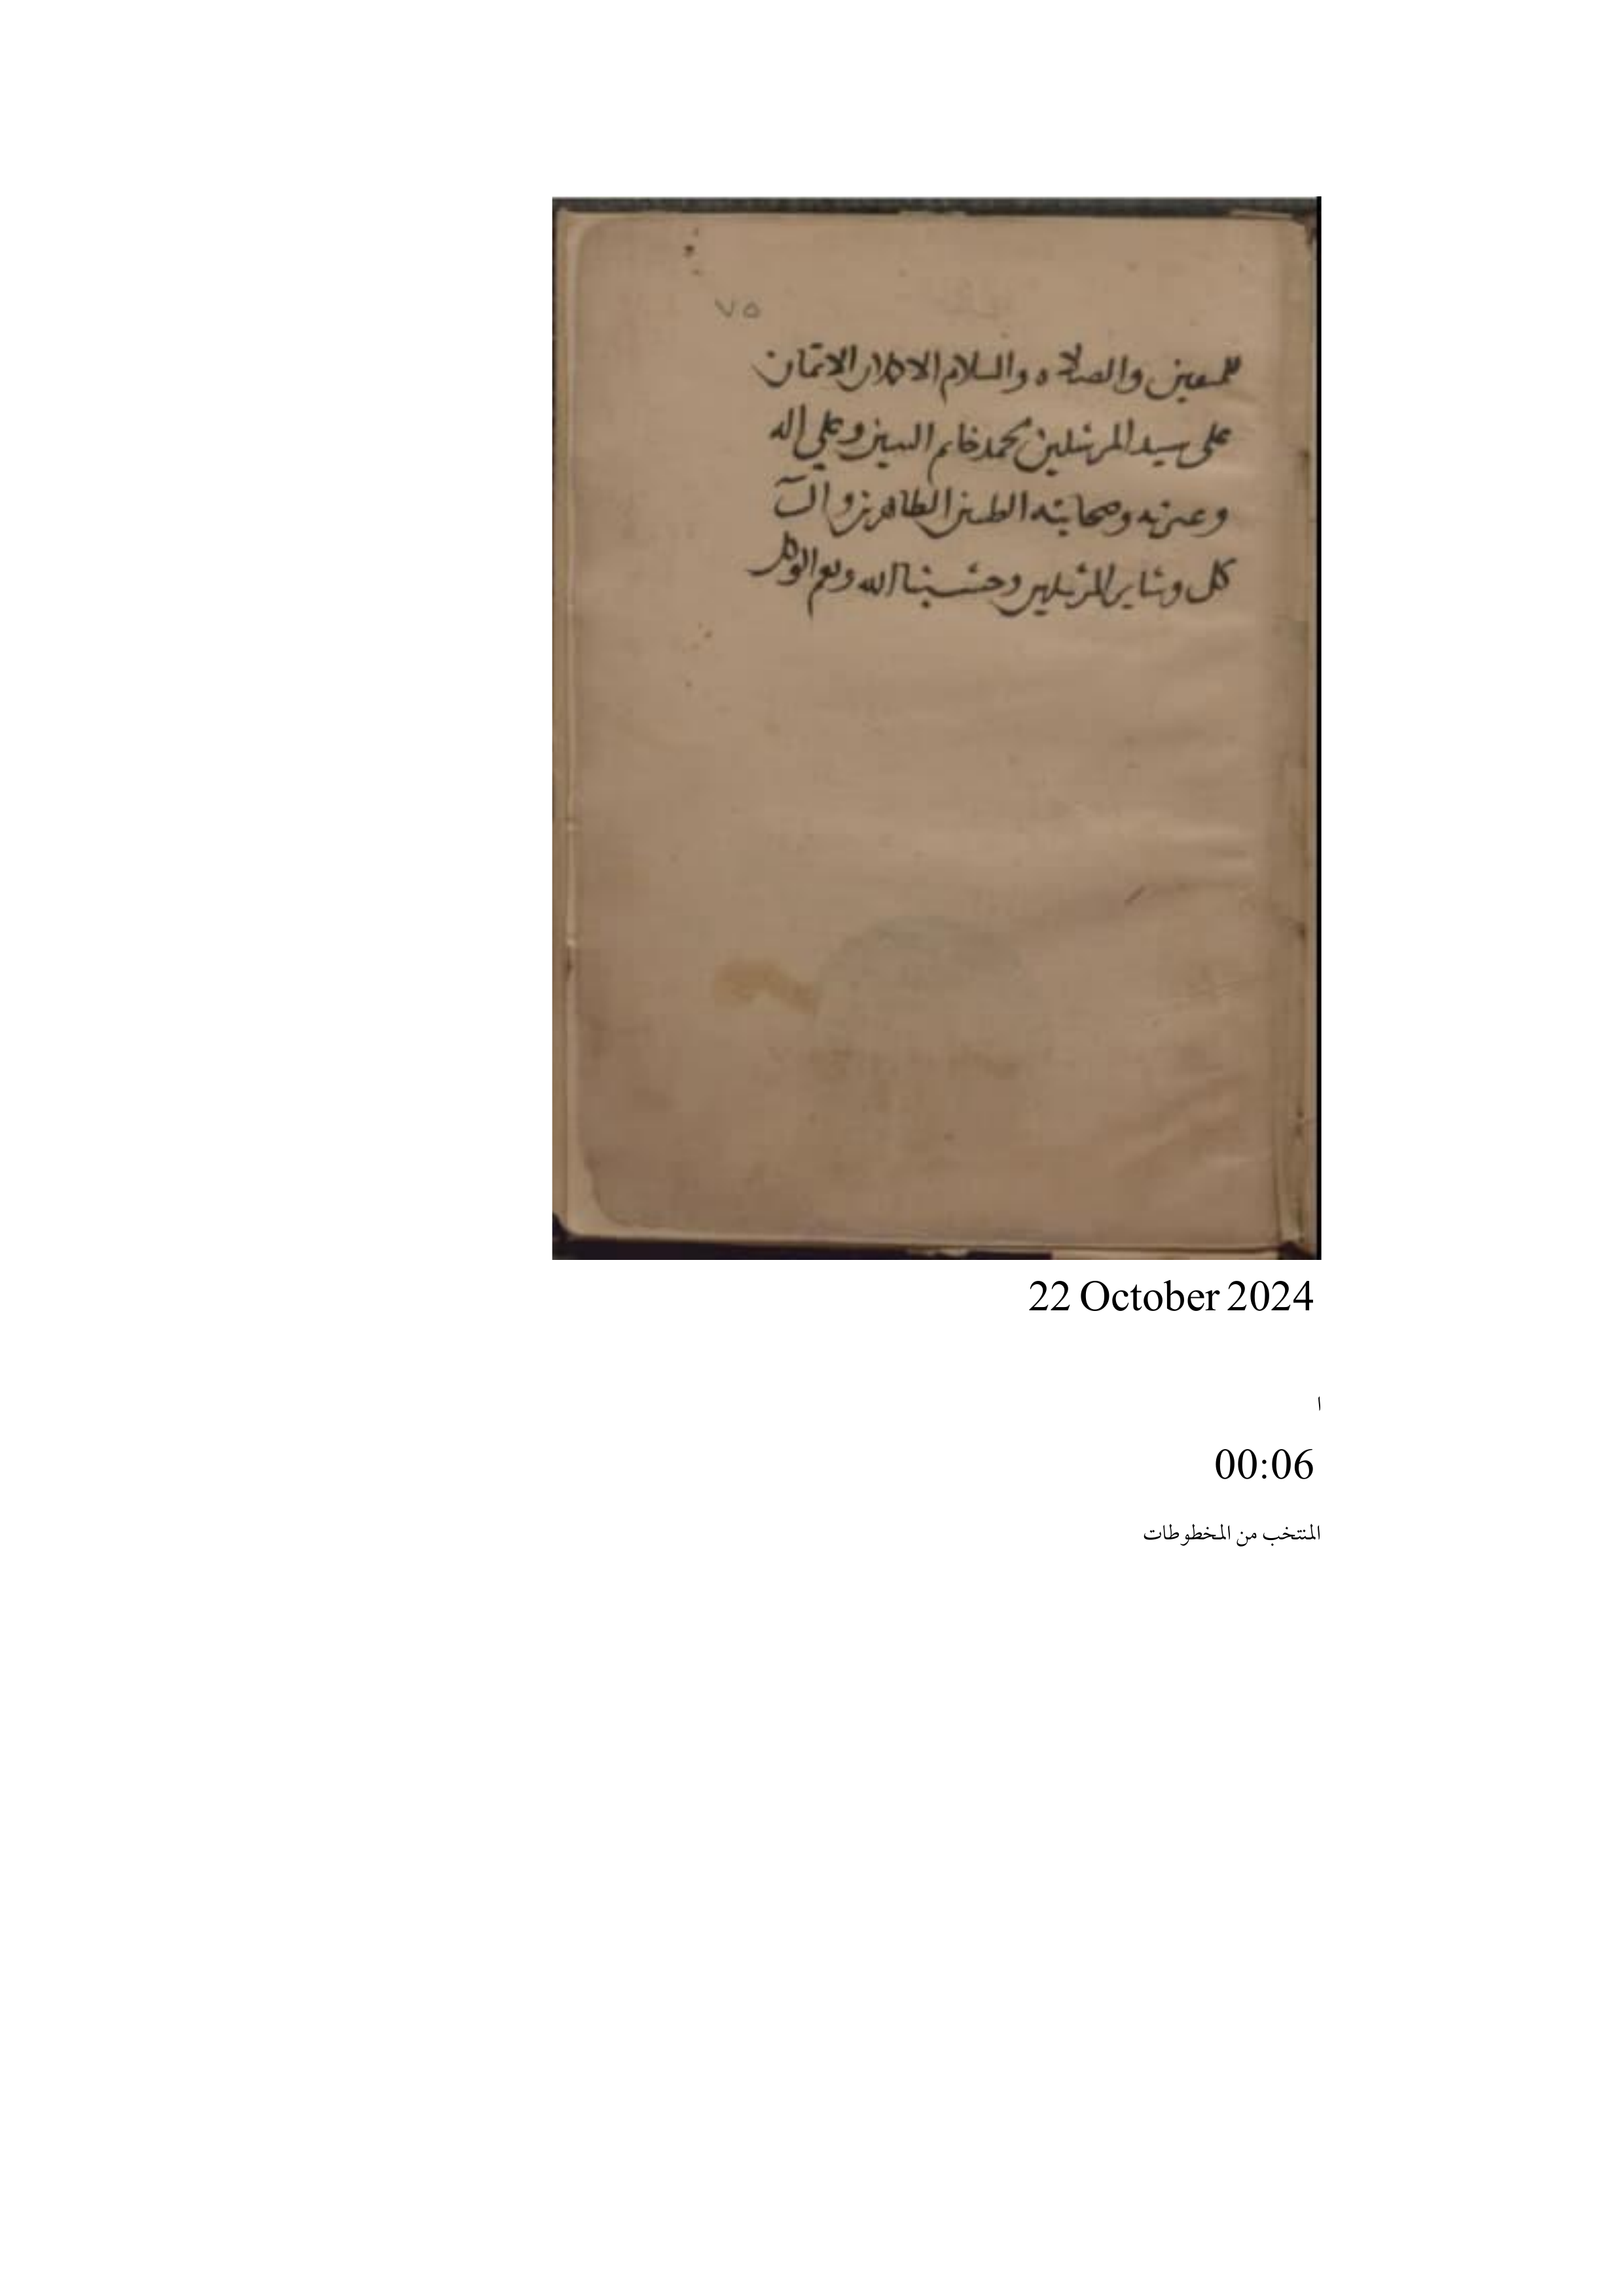 ٧٥
للمتقين والصلاه والسلام الاكملان الاتمان
على سيد المرسلين محمد خاتم النبيين وعلى اله
وعترته وصحابته الطيبين الطاهرين وال
كل وساير المرسلين وحسبنا الله ونعم الوكيل
22 October 2024
ا
00:06
المنتخب من المخطوطات